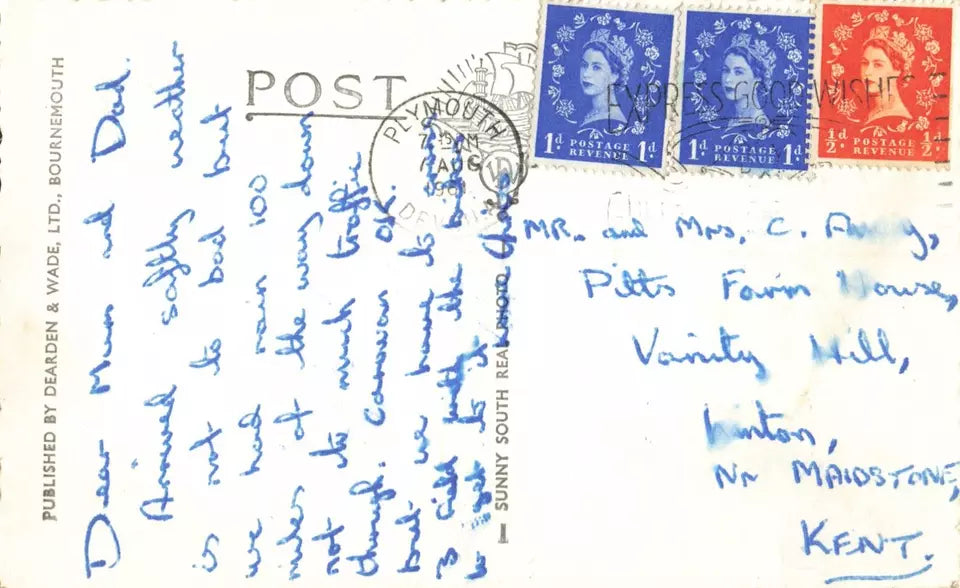 PUBLISHED BY DEARDEN & WADE, LTD., BOURNEMOUTH
Dear Mum and Dad.
Arrived saftly weather
is not to bad but
we had rain 100
miles of the way down
not to much traffic
though. Caravan OK.
but we have to
3 field with the
to get to it
SUNNY SOUTH REAL PHOTO
POST
PLYMOUTH
AM
AUG
DEVON
EXPRESS GOOD WISHES
1d POSTAGE REVENUE 1d
1d POSTAGE REVENUE 1d
½d POSTAGE REVENUE ½d
MR. and Mrs, C.
Pitts Farm House,
Vanity Hill,
Linton,
Nr MAIDSTONE,
KENT.